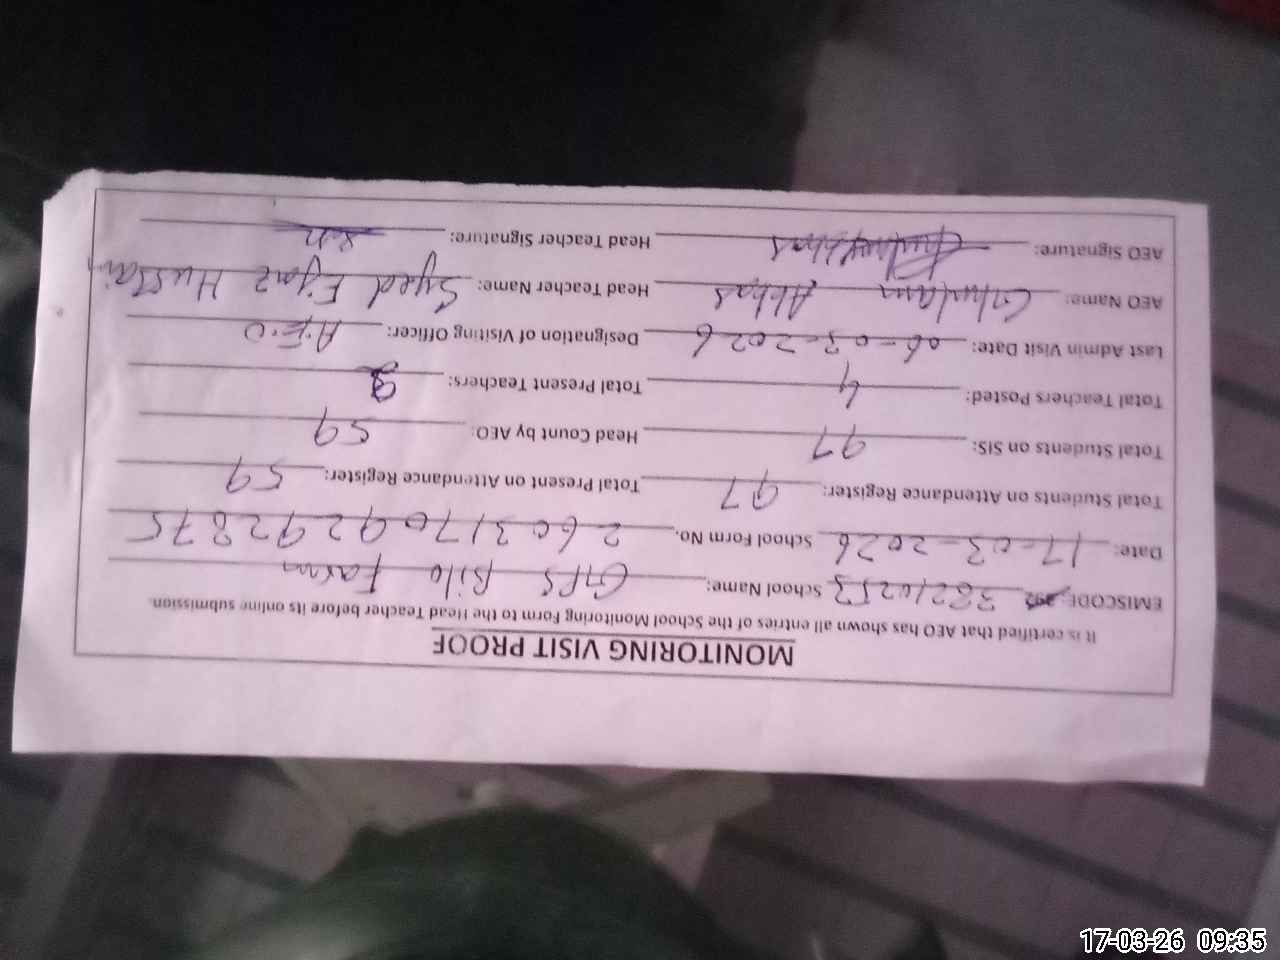 MONITORING VISIT PROOF
It is certified that AEO has shown all entries of the School Monitoring Form to the Head Teacher before its online submission.
EMISCODE: 38210253 School Name: GPS Bilo Farm
Date: 17-03-2026 School Form No. 26031709292875
Total Students on Attendance Register: 97 Total Present on Attendance Register: 59
Total Students on SIS: 97 Head Count by AEO: 59
Total Teachers Posted: 4 Total Present Teachers: 3
Last Admin Visit Date: 06-03-2026 Designation of Visiting Officer: A.E.O
AEO Name: Ghulam Abbas Head Teacher Name: Syed Ejaz Hussain
AEO Signature: Head Teacher Signature:
17-03-26 09:35